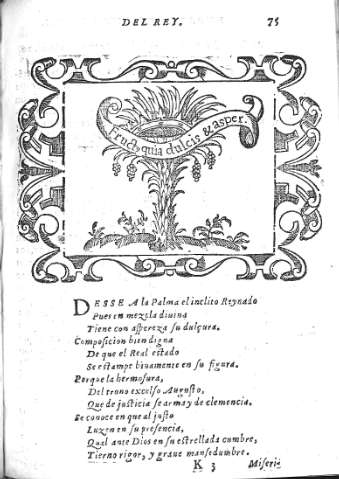 DEL REY. 75
Fructꝰ quia dulcis & asper.
DESSE A la Palma el inclito Reynado
Pues en mezcla diuina
Tiene con aspereza su dulçura.
Composicion bien digna
De que el Real estado
Se estampe biuamente en su figura.
Porque la hermosura,
Del trono excelso Augusto,
Que de justicia se arma y de clemencia.
Se conoce en que al justo
Luzen en su presencia,
Qual ante Dios en su estrellada cumbre,
Tierno rigor, y graue mansedumbre.
K 3 Miseri